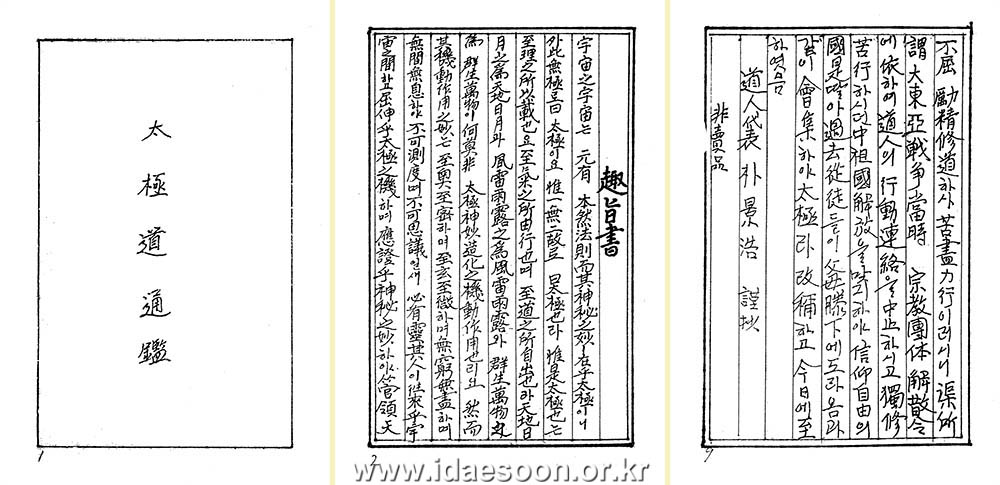 太極道通鑑
1
趣旨書
宇宙之宇宙는 元有 本然法則而其神秘之妙 在乎太極이니
外此無極로曰 太極이요 惟一無二故로 曰太極也라 惟是太極也는
至理之所以載也요 至氣之所由行也며 至道之所自出也라 天地日
月之爲天地日月과 風雷雨露之爲風雷雨露와 群生萬物之
爲 群生萬物이 何莫非 太極神妙造化之機動作用也리요 然而
其機動作用之妙는 至奧至密하며至玄至微하며無窮無盡하며
無間無息하야 不可測度며不可思議일새 必有靈其人이往來乎宇
宙之間하고屈伸乎太極之機하며應證乎神秘之妙하야管領天
2
不屈 勵精修道하사 苦盡力行이러시니 渠所
謂 大東亞戰争當時 宗敎團体 解散令
에 依하여 道人의 行動連絡을 中止하시고 獨修
苦行하시던中祖國解放을맞이하야 信仰自由의
國是딸아 過去從徒들이 父母膝下에도라옴과
같이 會集하야 太極라 改稱하고 今日에至
하였음
道人代表 朴景浩 謹抄
非賣品
9
www.idaesoon.or.kr